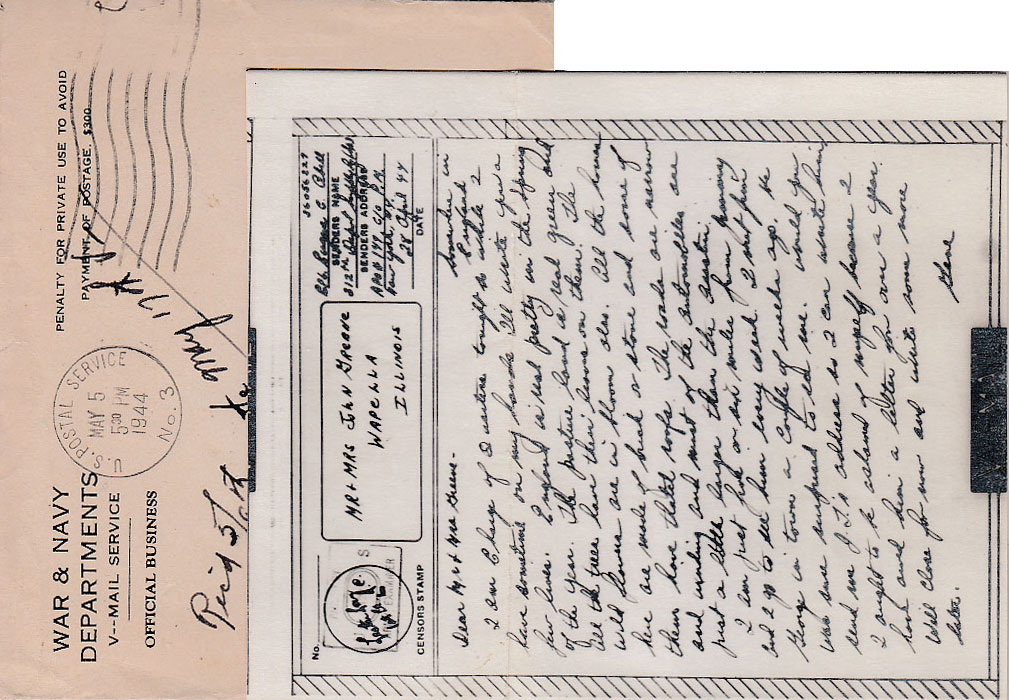 WAR & NAVY
DEPARTMENTS
V--MAIL SERVICE
OFFICIAL BUSINESS
PENALTY FOR PRIVATE USE TO AVOID
PAYMENT OF POSTAGE, $300
U.S. POSTAL SERVICE
MAY 5
5 30 PM
1944
No. 3
May 17
No.
CENSORS STAMP
MR + MRS JOHN GREENE
WAPELLA
ILLINOIS
36056227
SENDERS NAME
SENDERS ADDRESS
New York, N.Y.
28 April 44
DATE
Somewhere in
England
Dear Mr & Mrs Greene-
I am Charge of Quarters tonight so while I
have sometime on my hands I'll write you a
few lines. England is real pretty in the spring
of the year. The pasture land is real green and
all the trees have their leaves on them. The
wild flowers are in bloom also. All the homes
here are made of brick or stone and some of
them have thatched roofs. The roads are narrow
and winding and most of the automobiles are
just a little larger than the Austin.
I am just five or six miles from
and go to see him every week. I met him
George in town a couple of weeks ago. He
was sure surprised to see me. Will you
send me J.T.'s address so I can write him
I ought to be ashamed of myself because I
have owed him a letter for over a year.
Will close for now and write some more
later.